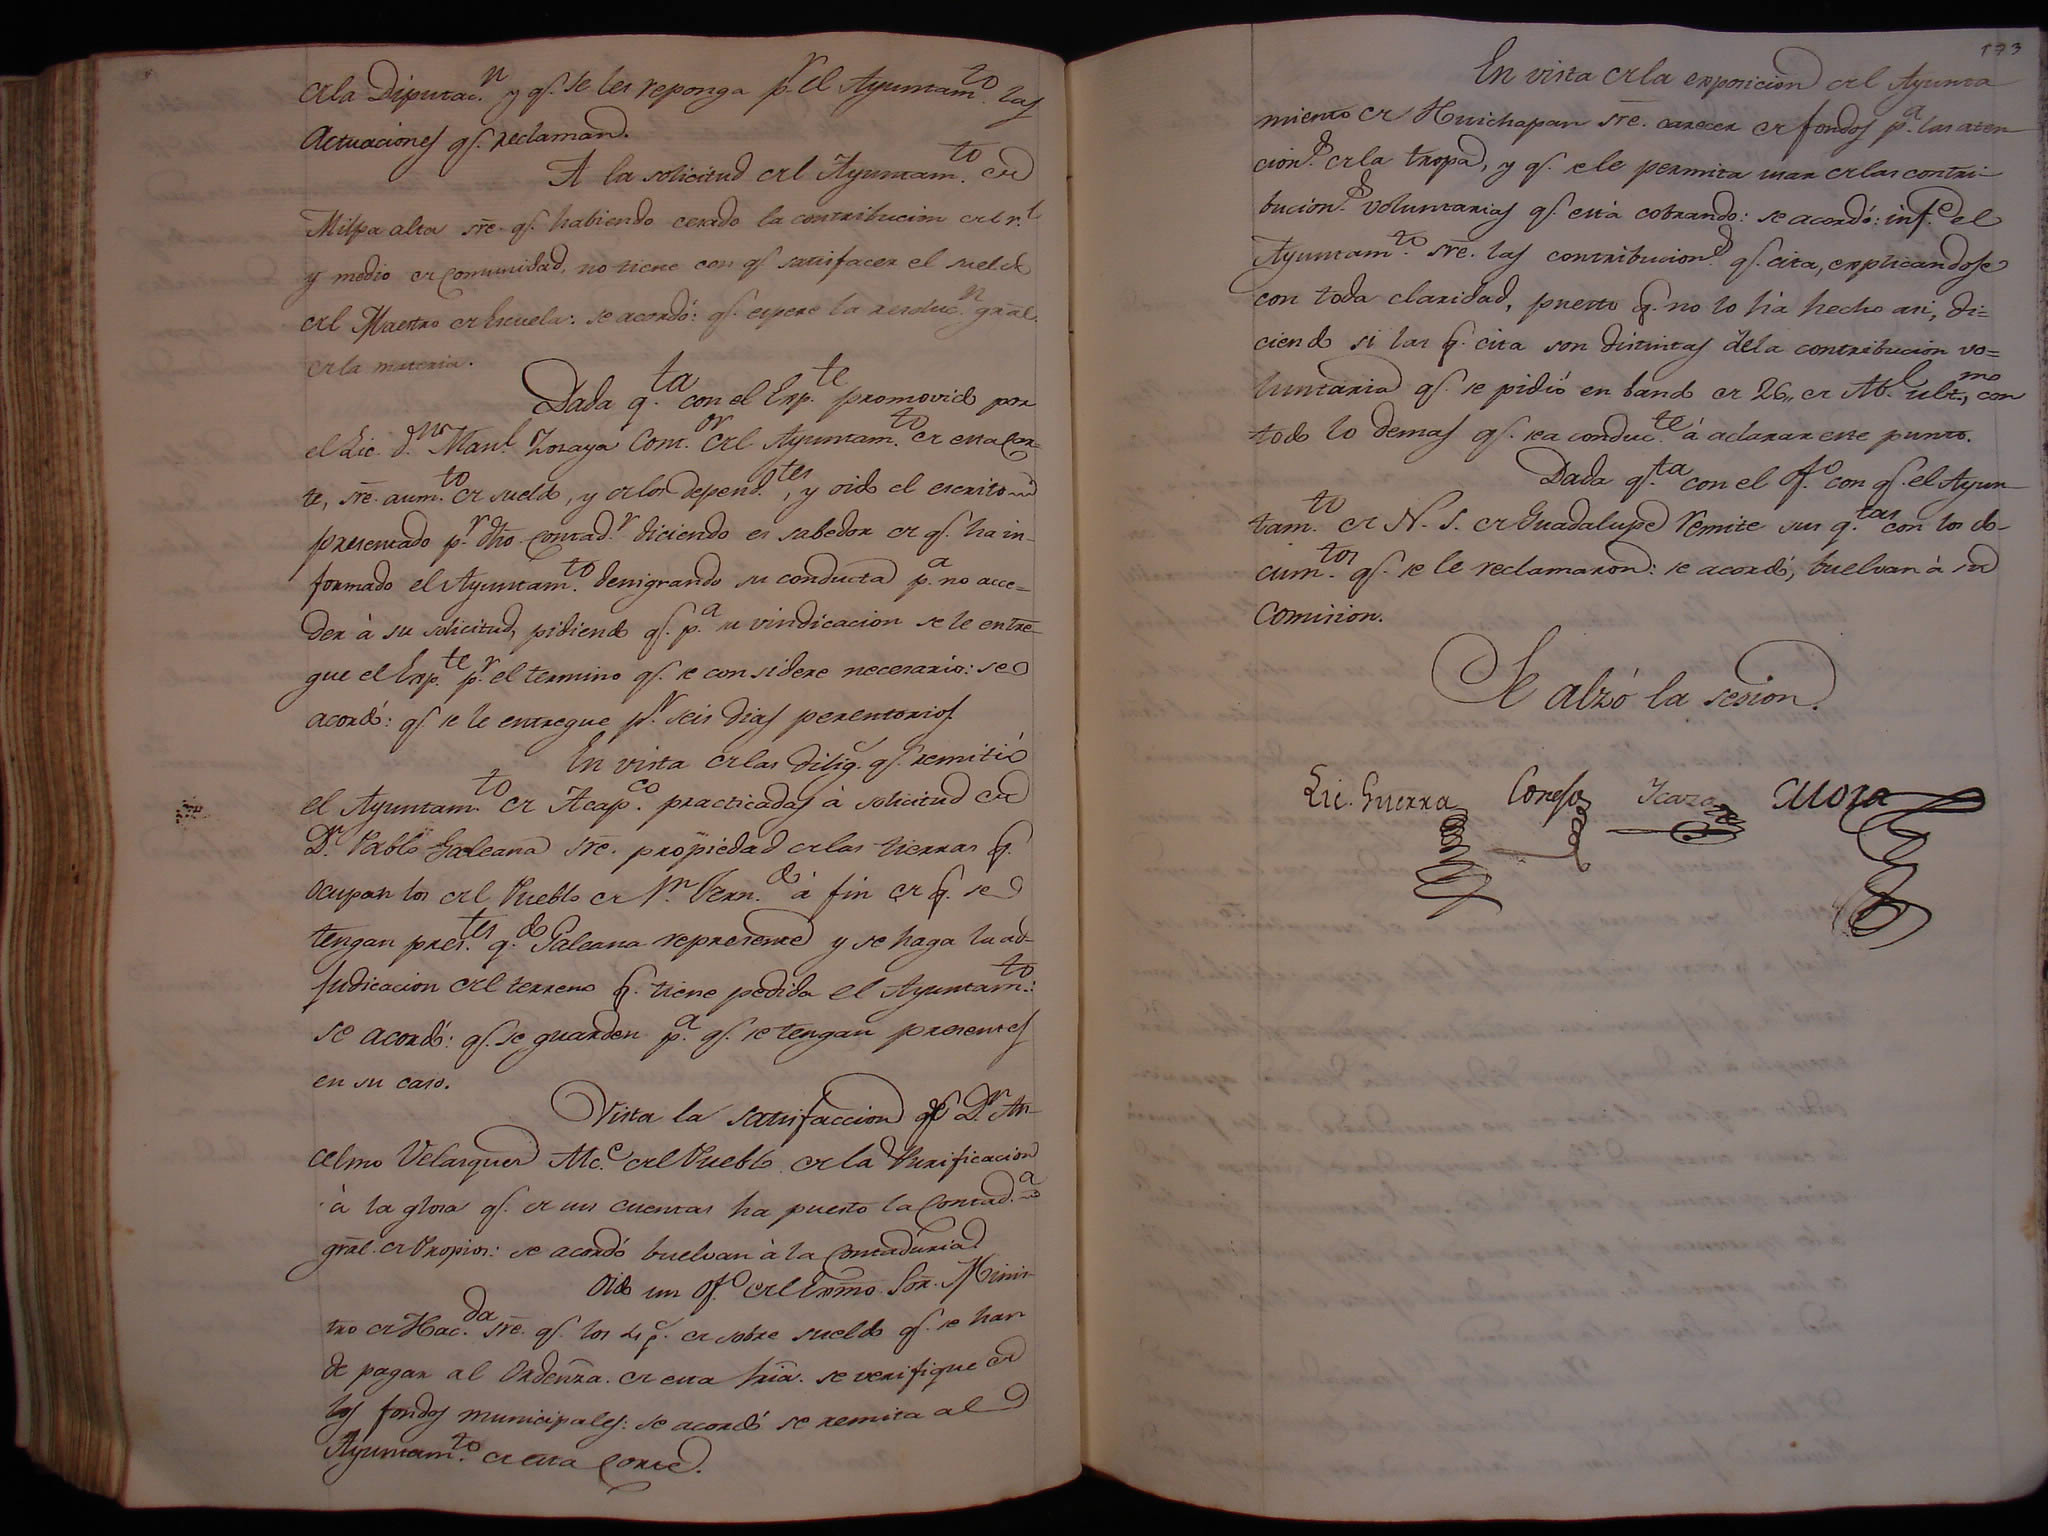 de la Diputac.n y q.e se les reponga p.r el Ayuntam.to las
Actuaciones q.e reclaman.
A la solicitud del Ayuntam.to de
Milpa alta sre. q.e habiendo cesado la contribucion del r.l
y medio de Comunidad, no tiene con q.e satisfacer el sueldo
del Maestro de Escuela: se acordó: q.e espere la resoluc.n gral.
de la materia.
Dada q.ta con el Exp.te promovido por
el Lic. d.n Man.l Zozaya Cont.or del Ayuntam.to de esta Cor-
te, sre. aum.to de sueldo, y de los depend.tes, y oido el escrito
presentado p.r dho. Contad.r diciendo es sabedor de q.e ha in-
formado el Ayuntam.to denigrando su conducta p.a no acce-
der à su solicitud, pidiendo q.e p.a su vindicacion se le entre-
gue el Exp.te p.r el termino q.e se considere necesario: se
acordó: q.e se le entregue p.r seis dias perentorios
En vista de las dilig.s q.e remitió
el Ayuntam.to de Acap.co practicadas à solicitud de
D.n Pablo Galeana sre. propiedad de las tierras q.e
ocupan los del Pueblo de S.n Bern.do à fin de q.e se
tengan pres.tes q.do Galeana represente y se haga la ad-
judicacion del terreno q.e tiene pedida el Ayuntam.to:
se acordó: q.e se guarden p.a q.e se tengan presentes
en su caso.
Vista la satisfaccion q.e D.n An-
celmo Velasquez Alc.e del Pueblo de la Purificacion
à la glosa q.e de sus cuentas ha puesto la Contad.a
gral. de Propios: se acordó buelvan à la Contaduria
Oido un Of.o del Exmo. Sor. Minis-
tro de Hac.da sre. q.e los 4 p. de sobre sueldo q.e se han
de pagar al Ordenza. de esta sria. se verifique de
los fondos municipales: se acordó se remita al
Ayuntam.to de esta Corte.
173
En vista de la exposicion del Ayunta
miento de Huichapan sre. carecer de fondos p.a las aten-
cion.s de la tropa, y q.e se le permita usar de las contri-
bucion.s voluntarias q.e está cobrando: se acordó: inf.e el
Ayuntam.to sre. las contribucion.s q.e cita, explicandose
con toda claridad, puesto q.e no lo há hecho asi, di-
ciendo si las q.e cita son distintas dela contribucion vo-
luntaria q.e se pidió en bando de 26,, de Ab.l ult.mo, con
todo lo demas q.e sea conduc.te à aclarar este punto.
Dada q.ta con el Of.o con q.e el Ayun-
tam.to de N. S. de Guadalupe remite sus q.tas con los do-
cum.tos q.e se le reclamaron: se acordó, buelvan à su
Comision.
Se alzó la sesion.
Lic. Guerra Conejo Icaza Mora